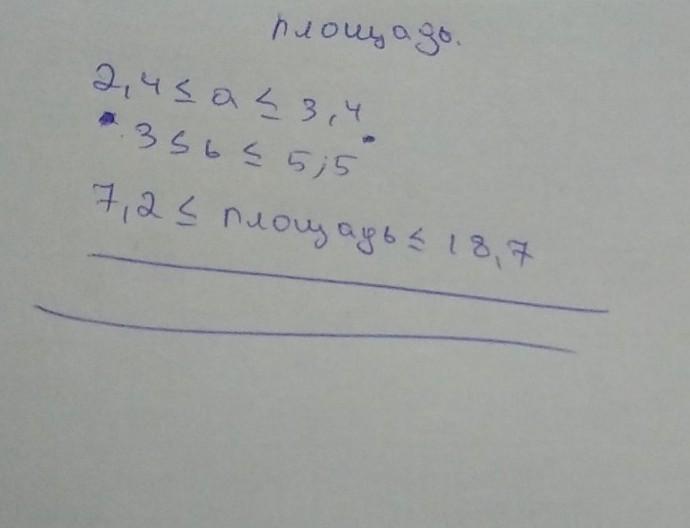 площадь.
2,4 ≤ a ≤ 3,4
3 ≤ b ≤ 5,5
7,2 ≤ площадь ≤ 18,7